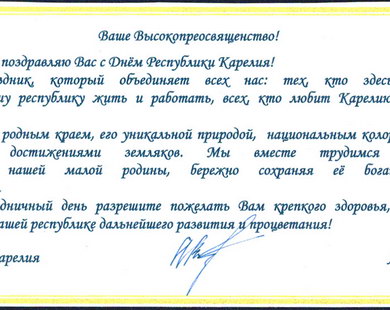 Ваше Высокопреосвященство!
поздравляю Вас с Днём Республики Карелия!
который объединяет всех нас: тех, кто
республику жить и работать, всех, кто любит
родным краем, его уникальной природой, национальным
достижениями земляков. Мы вместе трудимся
нашей малой родины, бережно сохраняя её
день разрешите пожелать Вам крепкого здоровья,
республике дальнейшего развития и процветания!